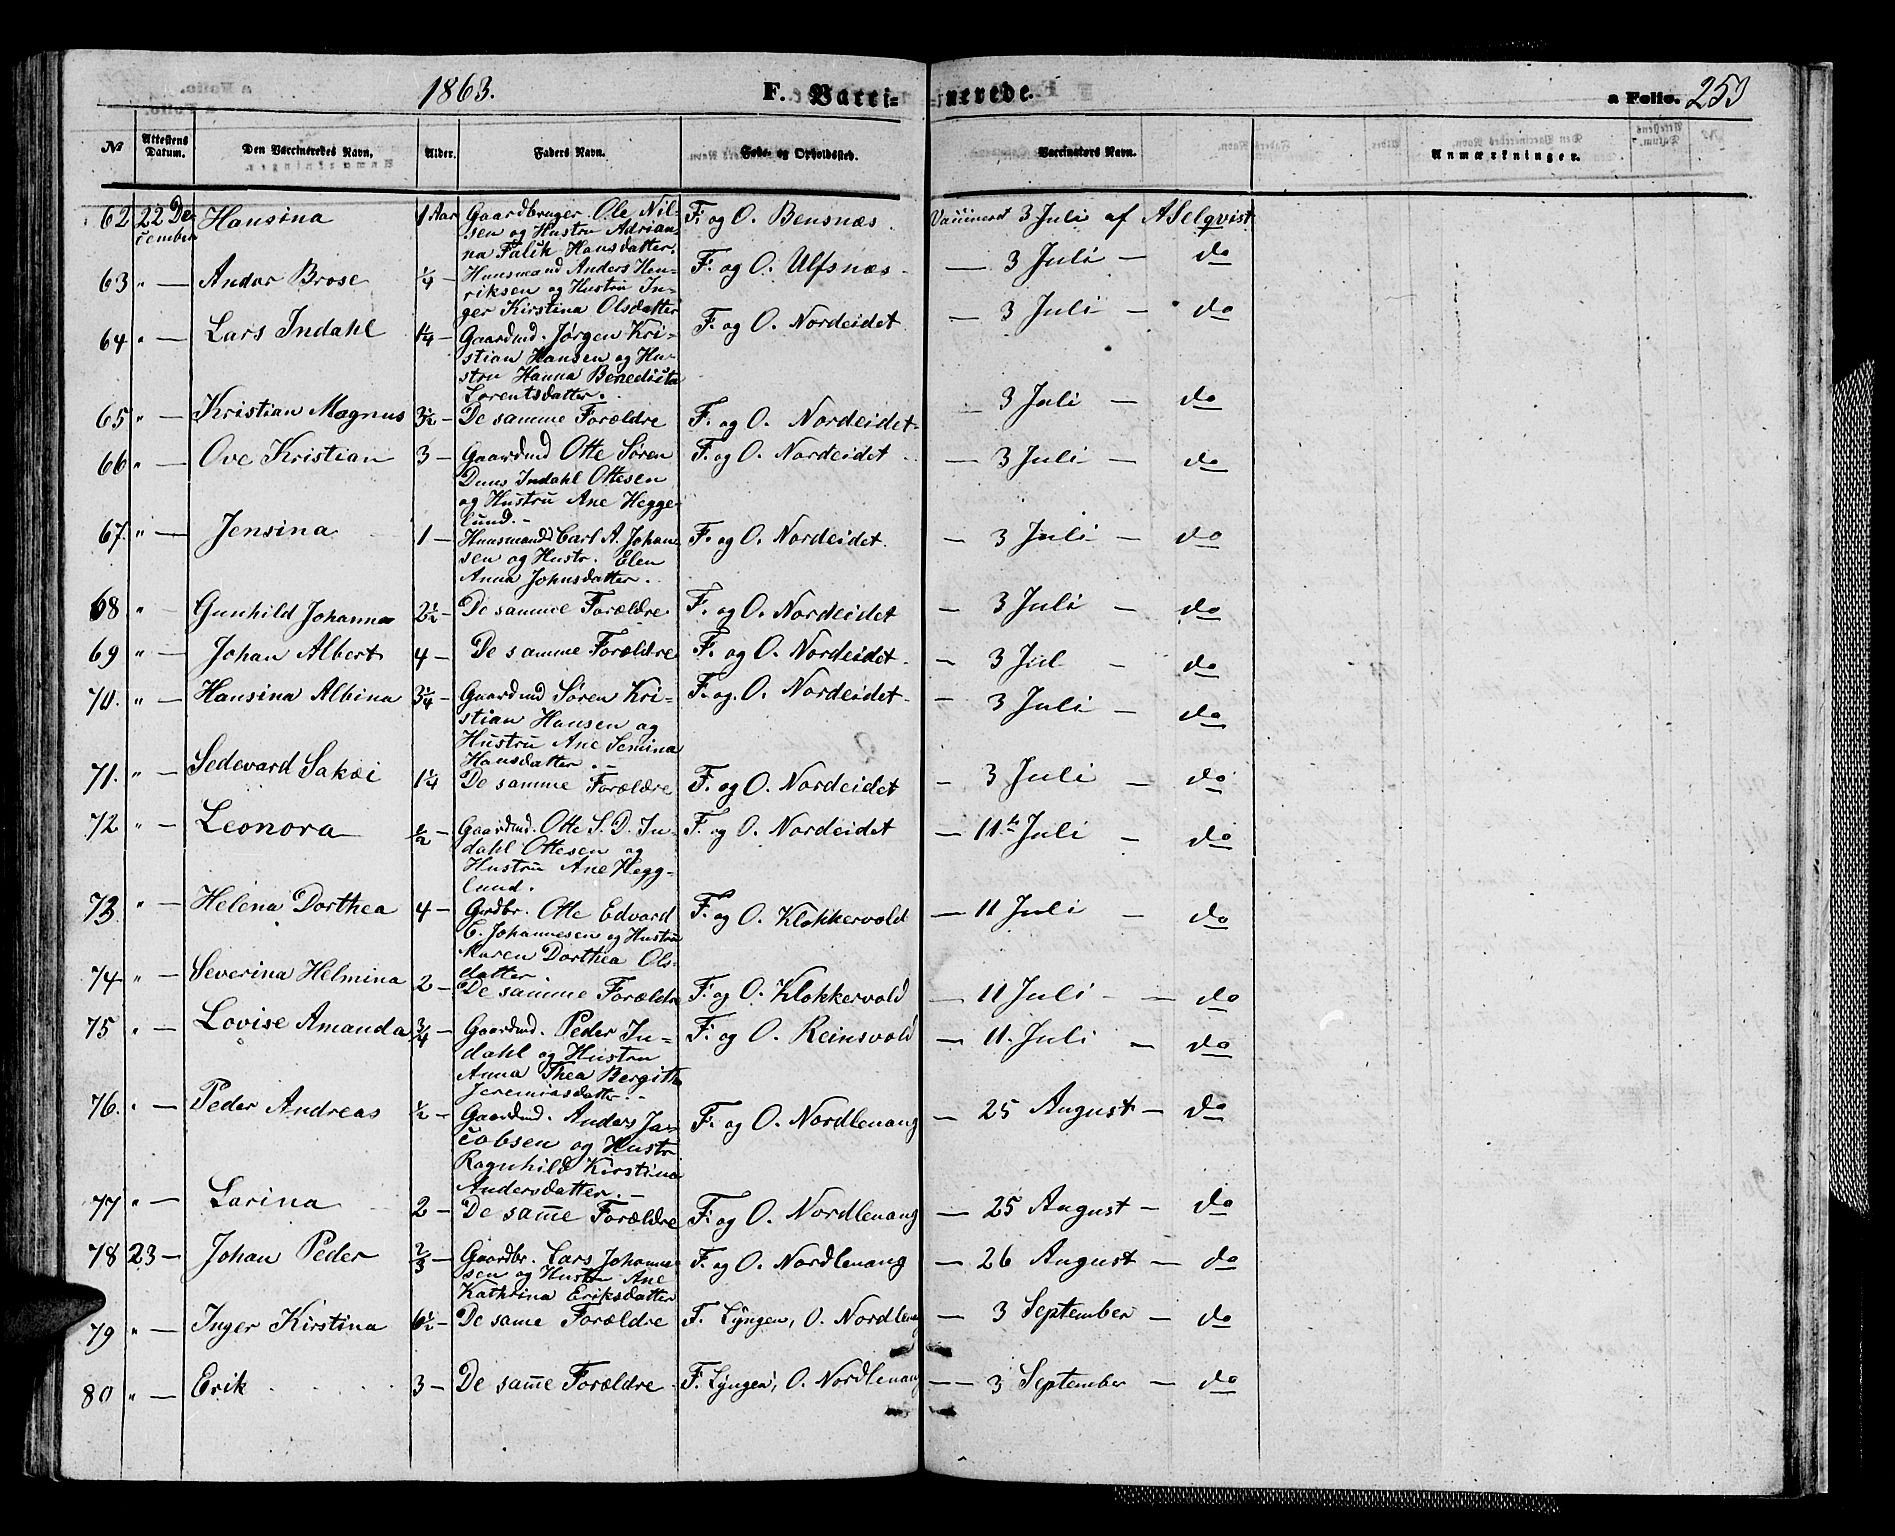 1863. F. Vacci- nerede. a Folio. 253
№ Attestens Datum. Den Vaccineredes Navn. Alder. Faders Navn. Føde- og Opholdssted. Vaccinators Navn. Anmærkninger.
62 22 De Hansina 1 Aar Gaardbruger. Ole Nil- F. og O. Bensnæs Vaccineret 3 Juli af A Selqvist
cember sen og Hustru Adrian-
na Falik Hansdatter.
63 " — Andor Brose ¼ — Huusmand Anders Hen- F. og O. Ulfsnæs — 3 Juli — do
riksen og Hustru In-
ger Kirstina Olsdatter
64 " — Lars Indahl 1¼ — Gaardmd. Jørgen Kri- F. og O. Nordeidet — 3 Juli — do
stian Hansen og Hu-
stru Hanna Benedicta
Lorentsdatter.
65 " — Kristian Magnus 3½ — De samme Forældre F. og O. Nordeidet — 3 Juli — do
66 " — Ove Kristian 3 — Gaardmd Otte Søren F. og O. Nordeidet — 3 Juli — do
Duus Indahl Ottesen
og Hustru Ane Hegge-
lund. -
67 " — Jensina 1 — Huusmand Carl A. Johan F. og O. Nordeidet. — 3 Juli — do
sen og Hustr. Elen
Anna Johnsdatter.
68 " — Gunhild Johanna 2½ — De samme Forældre F. og O. Nordeidet — 3 Juli — do
69 " — Johan Albert 4 — De samme Forældre F. og O. Nordeidet. — 3 Jul — do
70. " — Hansina Albina 3¼ — Gaardmd Søren Kri- F. og. O. Nordeidet — 3 Juli — do
stian Hansen og
Hustru Ane Semina
Hansdatter. -
71. " — Sedevard Sakæi 1¼ — De samme Forældre F. og O. Nordeidet — 3 Juli — do
72 " — Leonora ½ — Gaardmd. Otte S. D. In- F. og O. Nordeidet — 11te Juli — do
dahl Ottesen og
Hustru Ane Hegg-
lund.
73 " — Helena Dorthea 4 — Grdbr. Otte Edvard F. og O. Klokkervold — 11 Juli — do
E. Johannesen og Hustru
Maren Dorthea Ols-
datter.
74 " — Severina Helmina 2 — De samme Forældre F. og O. Klokkervold — 11 Juli — do
75 " — Lovise Amanda ¾ — Gaardmd. Peder In- F. og O. Reinsvold — 11. Juli — do
dahl og Hustru
Anna Thea Bergitha
Jeremiasdatter. -
76. " — Peder Andreas ½ — Gaardmd. Anders Ja- F. og O. Nordlenang — 25 August — do
cobsen og Hustr
Ragnhild Kirstina
Andersdatter. -
77 " — Larina 2 — De samme Forældre F. og O. Nordlenang — 25 August — do
78 23 — Johan Peder ⅔ — Gaardbr. Lars Johanne- F. og O. Nordlenang — 26 August — do
sen og Hustru Ane
Kathrina Eriksdatter
79 " — Inger Kirstina 6½ — De same Forældre F. Lyngen, O. Nordlenang — 3 September — do
80 " — Erik 3 — De samme Forældre F. Lyngen, O. Nordlenang — 3 September — do